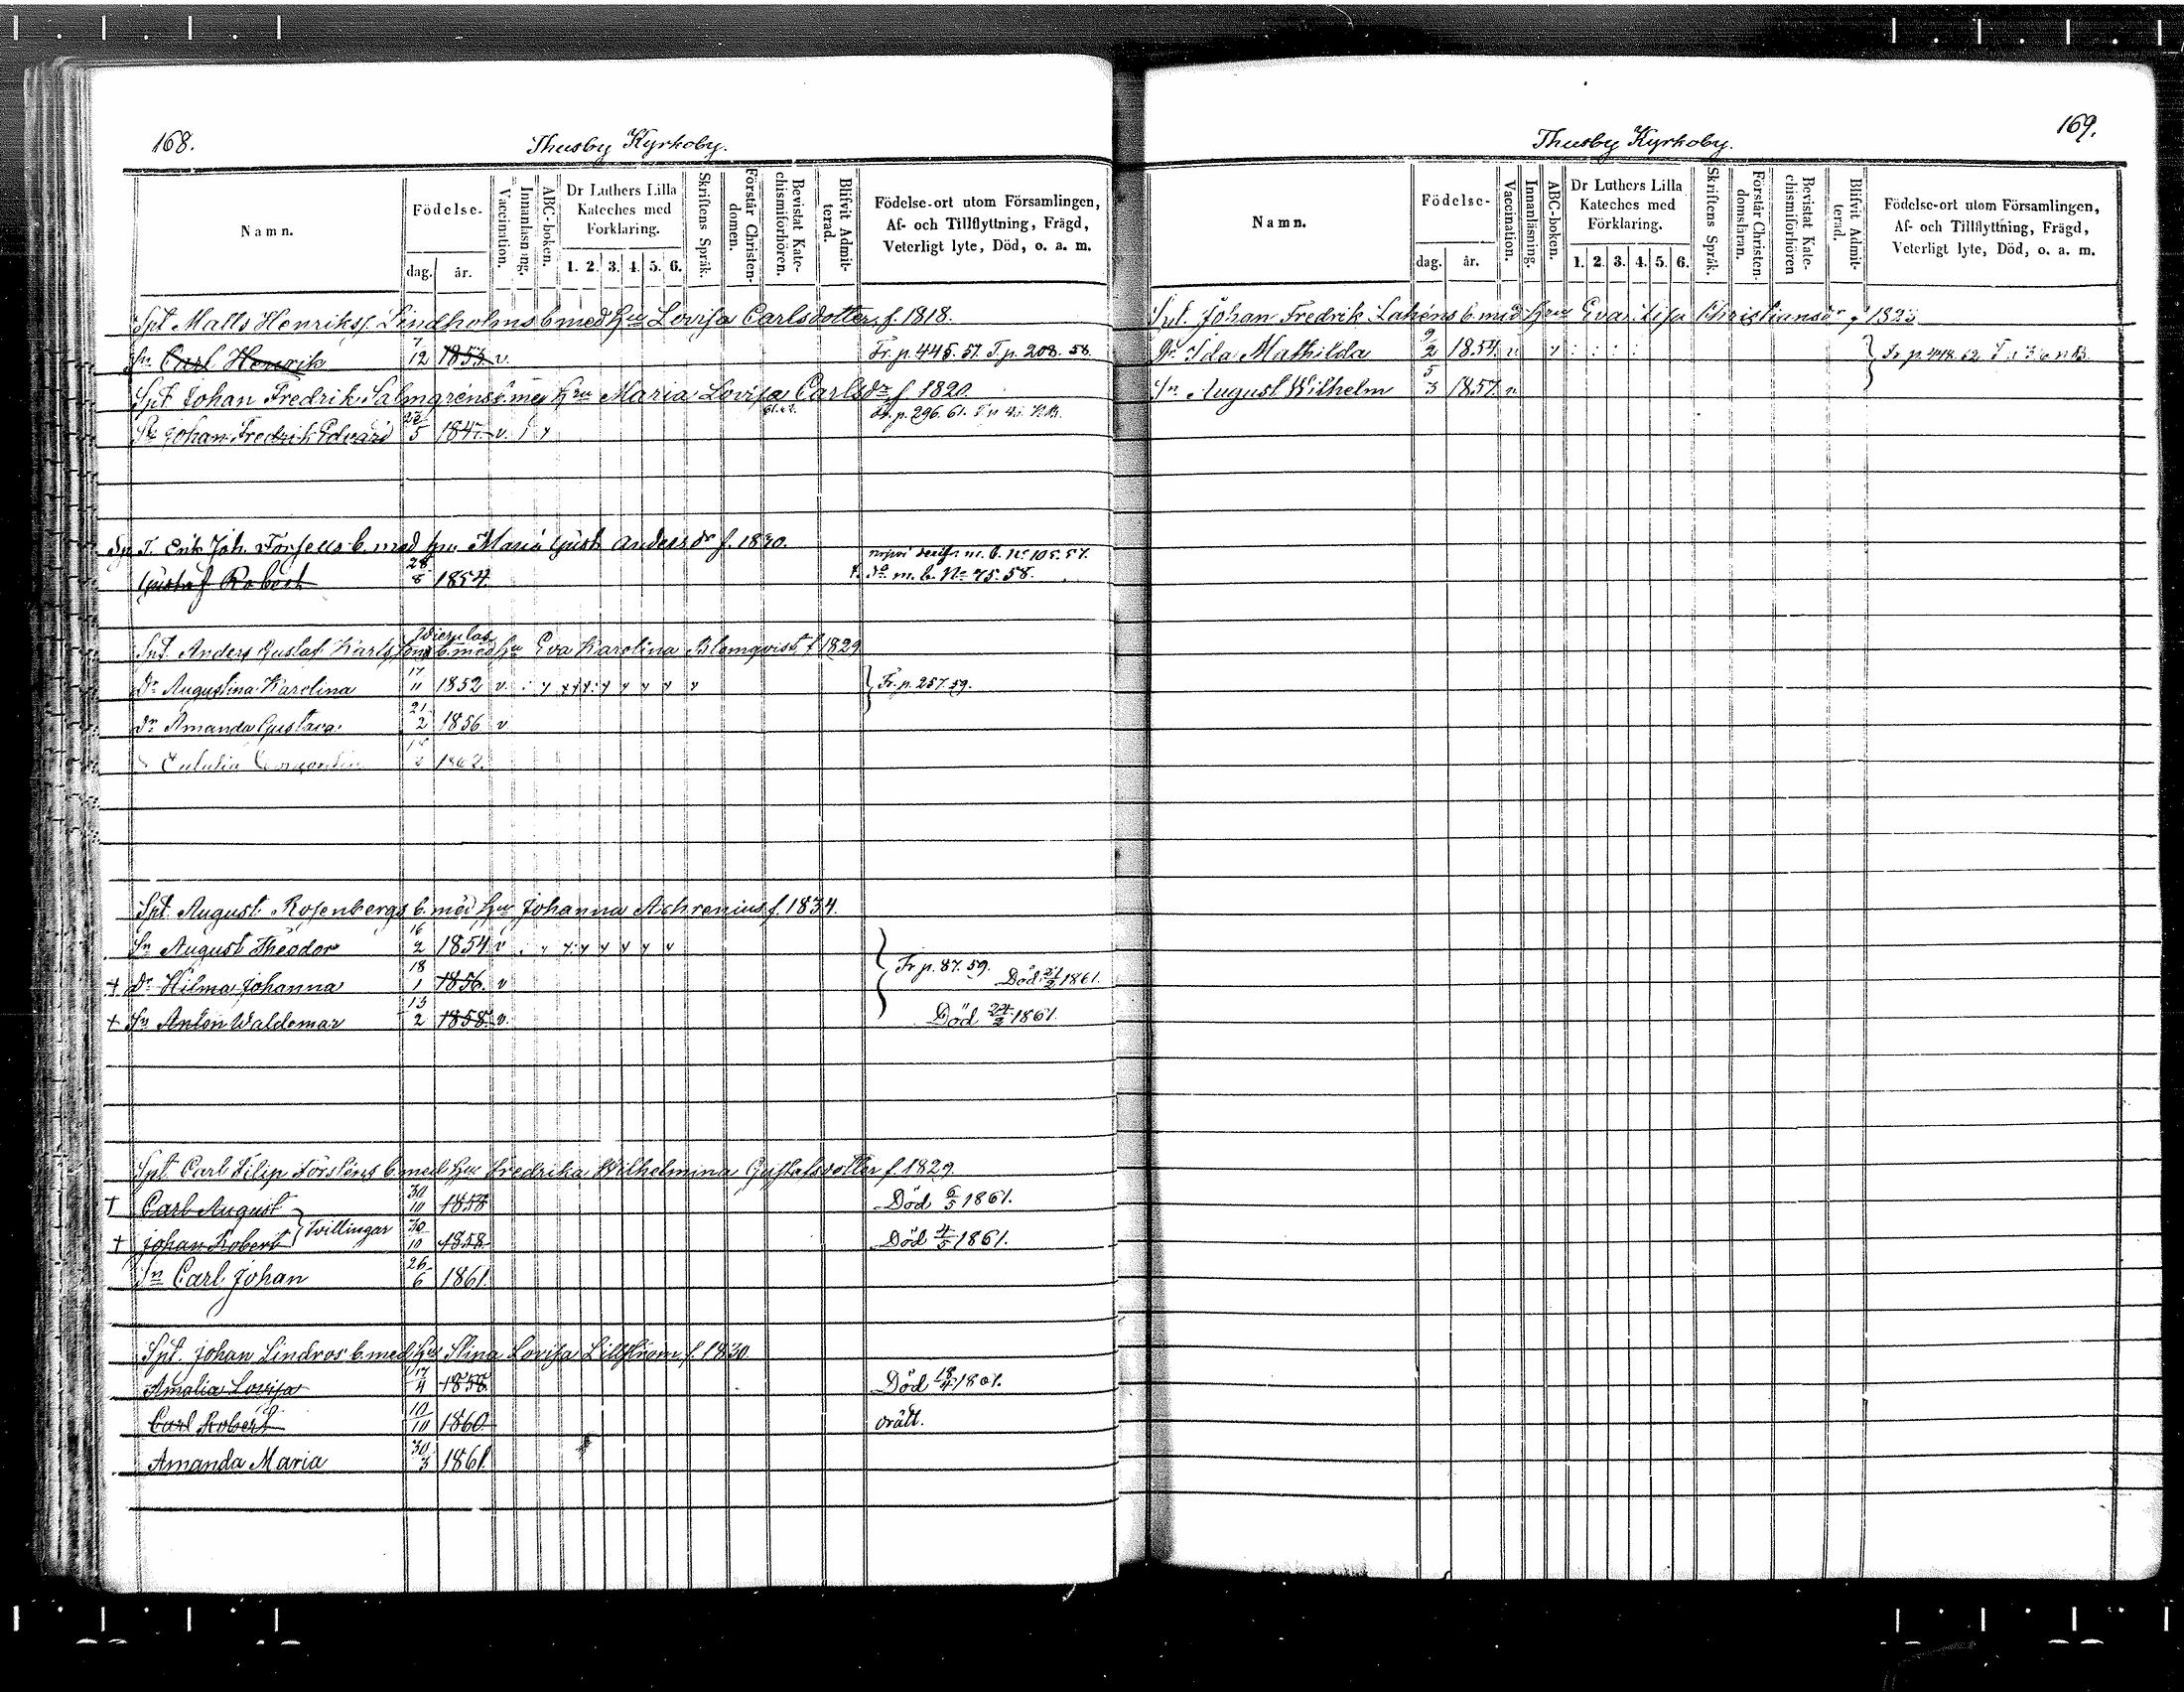 168.
Thusby Kyrkoby.
Namn.
Födelse-
dag. år.
Vaccination.
Innanläsning.
ABC-boken.
Dr Luthers Lilla Kateches med Förklaring.
1. 2. 3. 4. 5. 6.
Skriftens Språk.
Förstår Christendomen.
Bevistat Katechismiförhören.
Blifvit Admitterad.
Födelse-ort utom Församlingen,
Af- och Tillflyttning, Frägd,
Veterligt lyte, Död, o. a. m.
Spt Matts Henrikss. Lindholms b. med hu Lovisa Carlsdotter f. 1818.
Sn Carl Henrik 7/12 1853 v. Fr. p. 445. 57. T. p. 208. 58.
Spt Johan Fredrik Salmgrens b. med hru Maria Lovisa Carlsdr f. 1820.
Sn Johan Fredrik Edvard 5 1847 v. Fr. p. 296. 61.
Erik Joh. Forsells b. med hu Maria Gust. Andersdr f. 1830.
m. b. No 105. 57.
Gustaf Robert 28/8 1854 m. b. No 75. 58.
Spt. Anders Gustaf Karls b. med hu Eva Karolina Blomqvist f 1829
Dr Augustina Karolina 17/11 1852 v. Fr. p. 257. 59.
Dr Amanda Gustava 21/2 1856 v
1862.
Spt. August Rosenbergs b. med hu Johanna Achrenius f. 1834.
Sn August Theodor 16/2 1854 v
Fr p. 87. 59.
+ Dr Hilma Johanna 18/1 1856. v Död 21/2 1861.
+ Sn Anton Waldemar 13/2 1858. v. Död 24/2 1861.
Spt. Carl Filip Forstens b. med hu Fredrika Wilhelmina Gustafsdotter f. 1829
+ Carl August 30/10 1858 Död 6/5 1861.
Tvillingar
+ Johan Robert 30/10 1858 Död 4/5 1861.
Sn Carl Johan 26/6 1861.
Spt. Johan Lindros b. med hu Stina Lovisa Lillström f. 1830
Amalia Lovisa 17/4 1858 Död 18/4 1861.
Carl Robert 10/10 1860 orätt.
Amanda Maria 30/3 1861.
169.
Thusby Kyrkoby.
Namn.
Födelse-
dag. år.
Vaccination.
Innanläsning.
ABC-boken.
Dr Luthers Lilla Kateches med Förklaring.
1. 2. 3. 4. 5. 6.
Skriftens Språk.
Förstår Christendomsläran.
Bevistat Katechismiförhören
Blifvit Admitterad.
Födelse-ort utom Församlingen,
Af- och Tillflyttning, Frägd,
Veterligt lyte, Död, o. a. m.
Spt. Johan Fredrik b. med hru Eva Lisa Christiansdr
Dr Ida Mathilda 9/2 1854. v Fr p. 448. 62
Sn August Wilhelm 5/3 1857. v